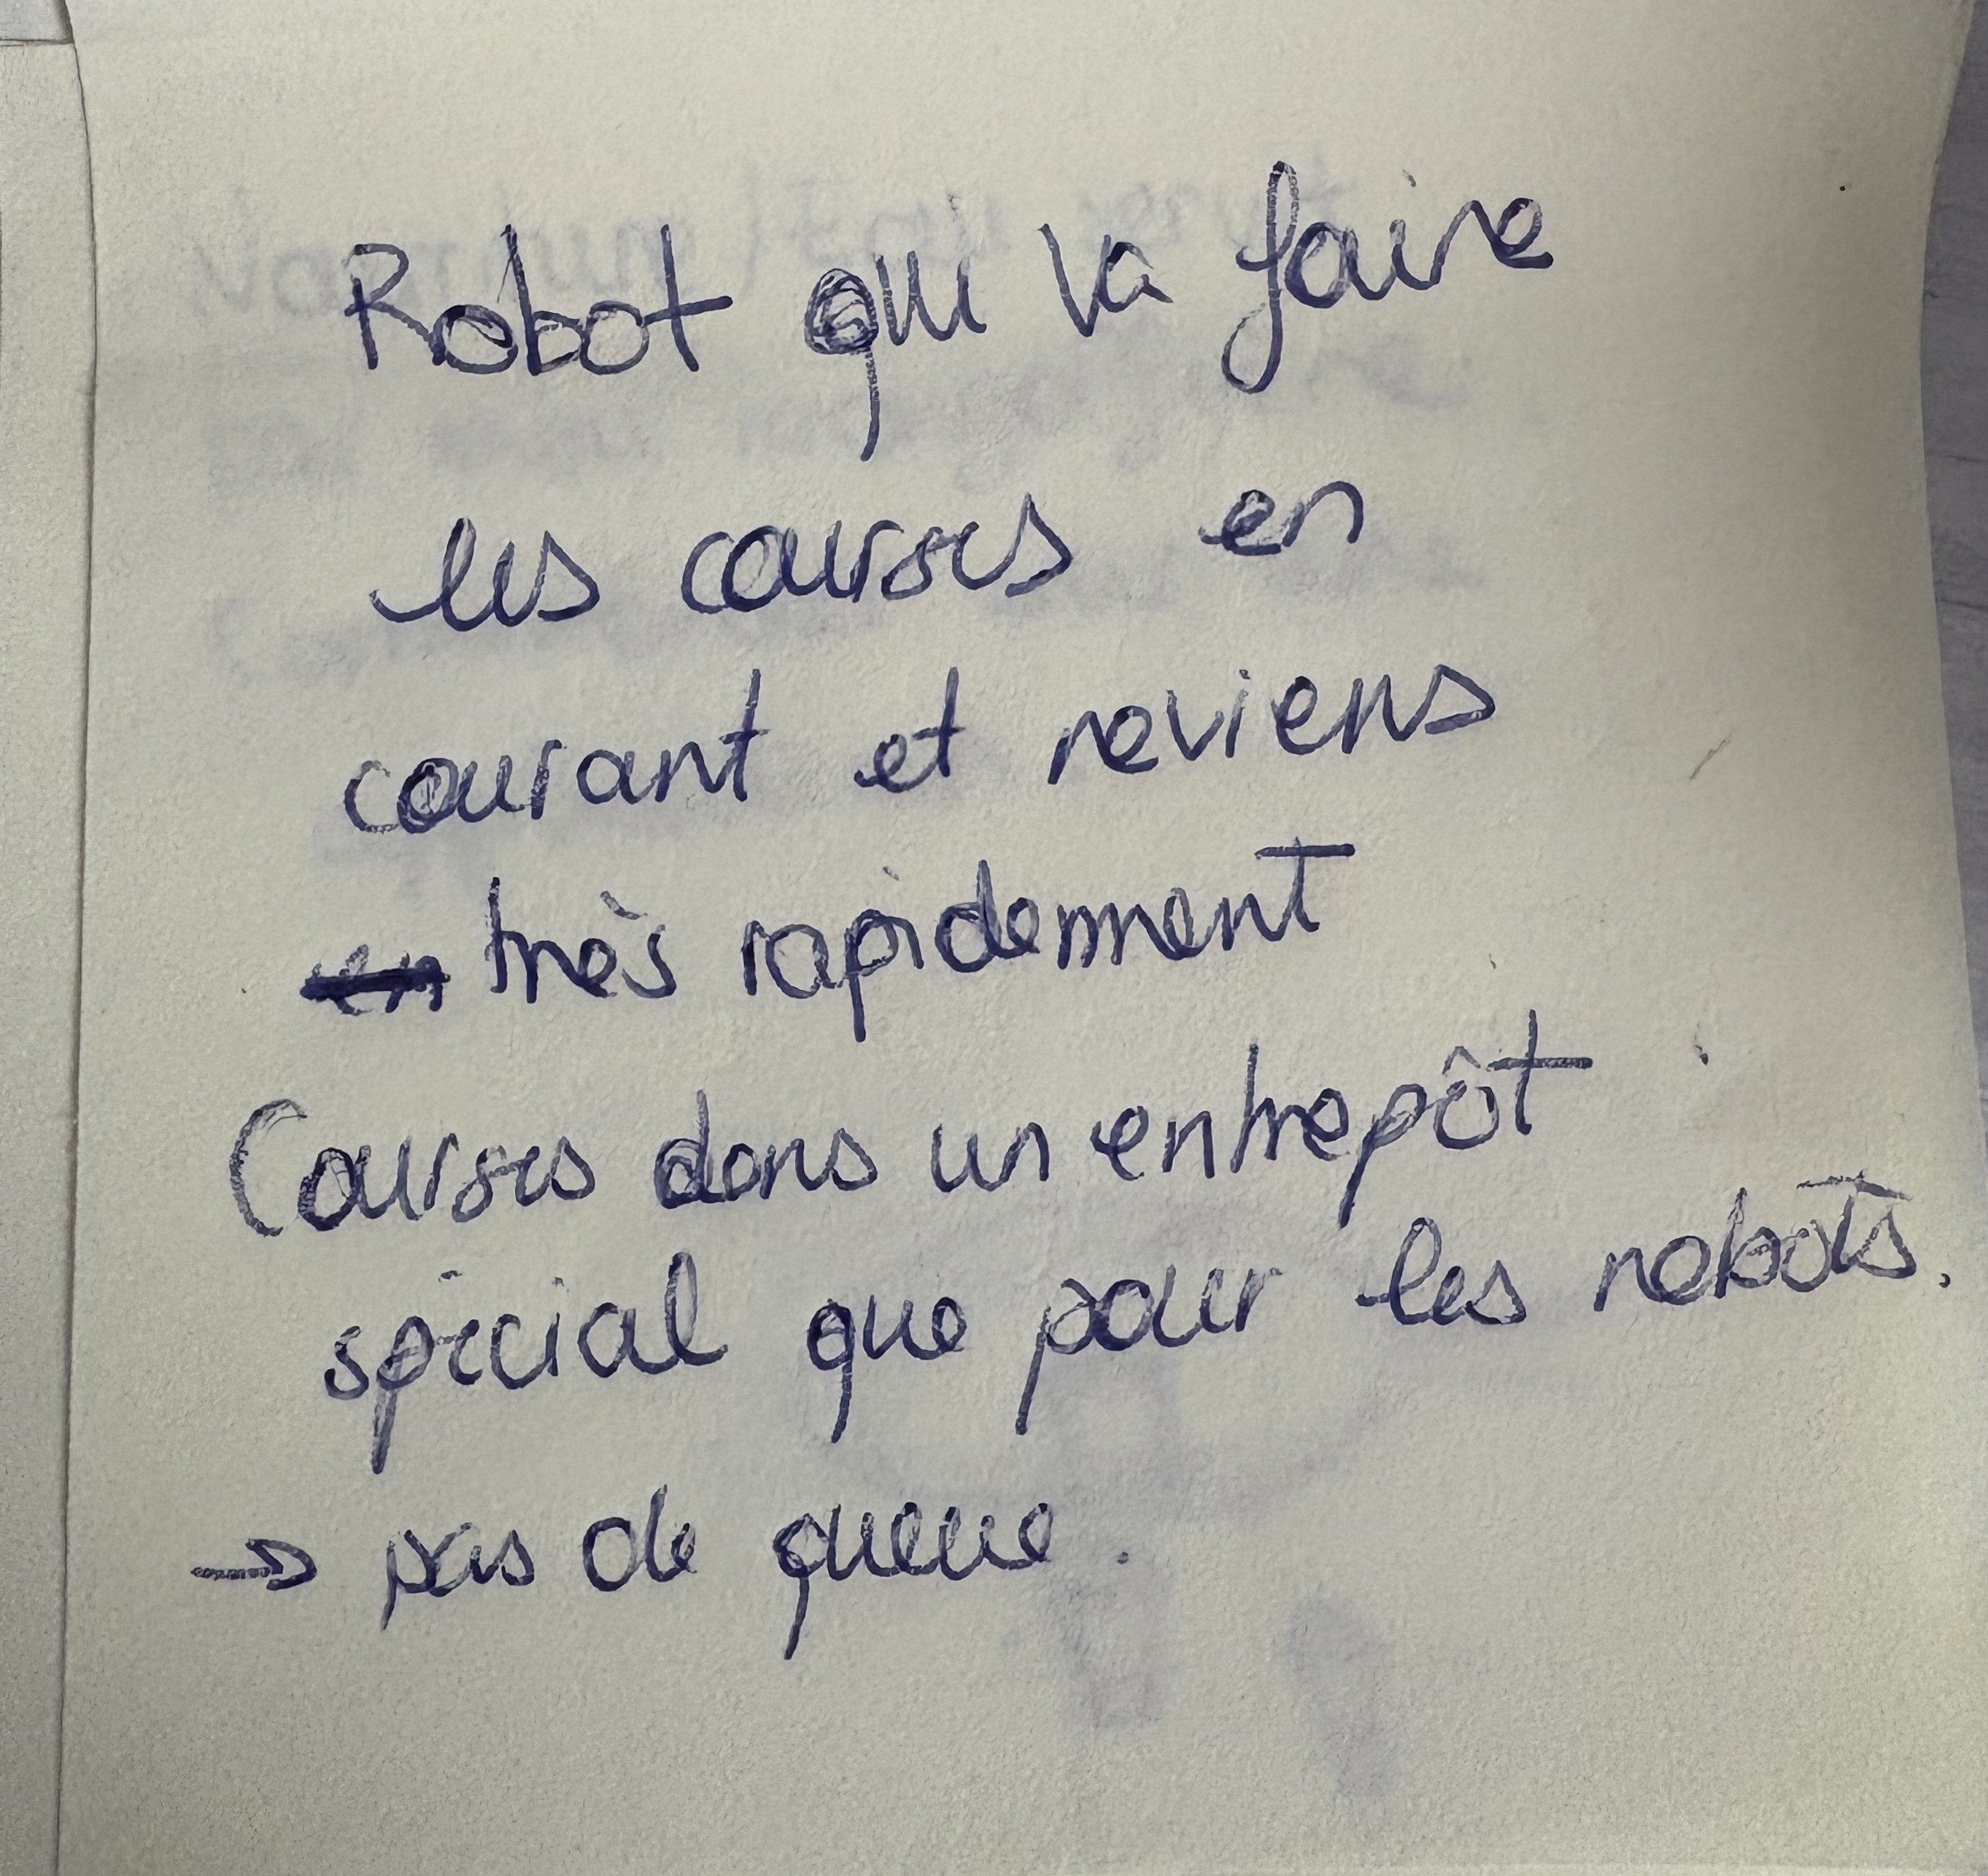 Robot qui va faire
les courses en
courant et reviens
en très rapidement
Courses dans un entrepôt
spécial que pour les robots.
→ pas de queue.